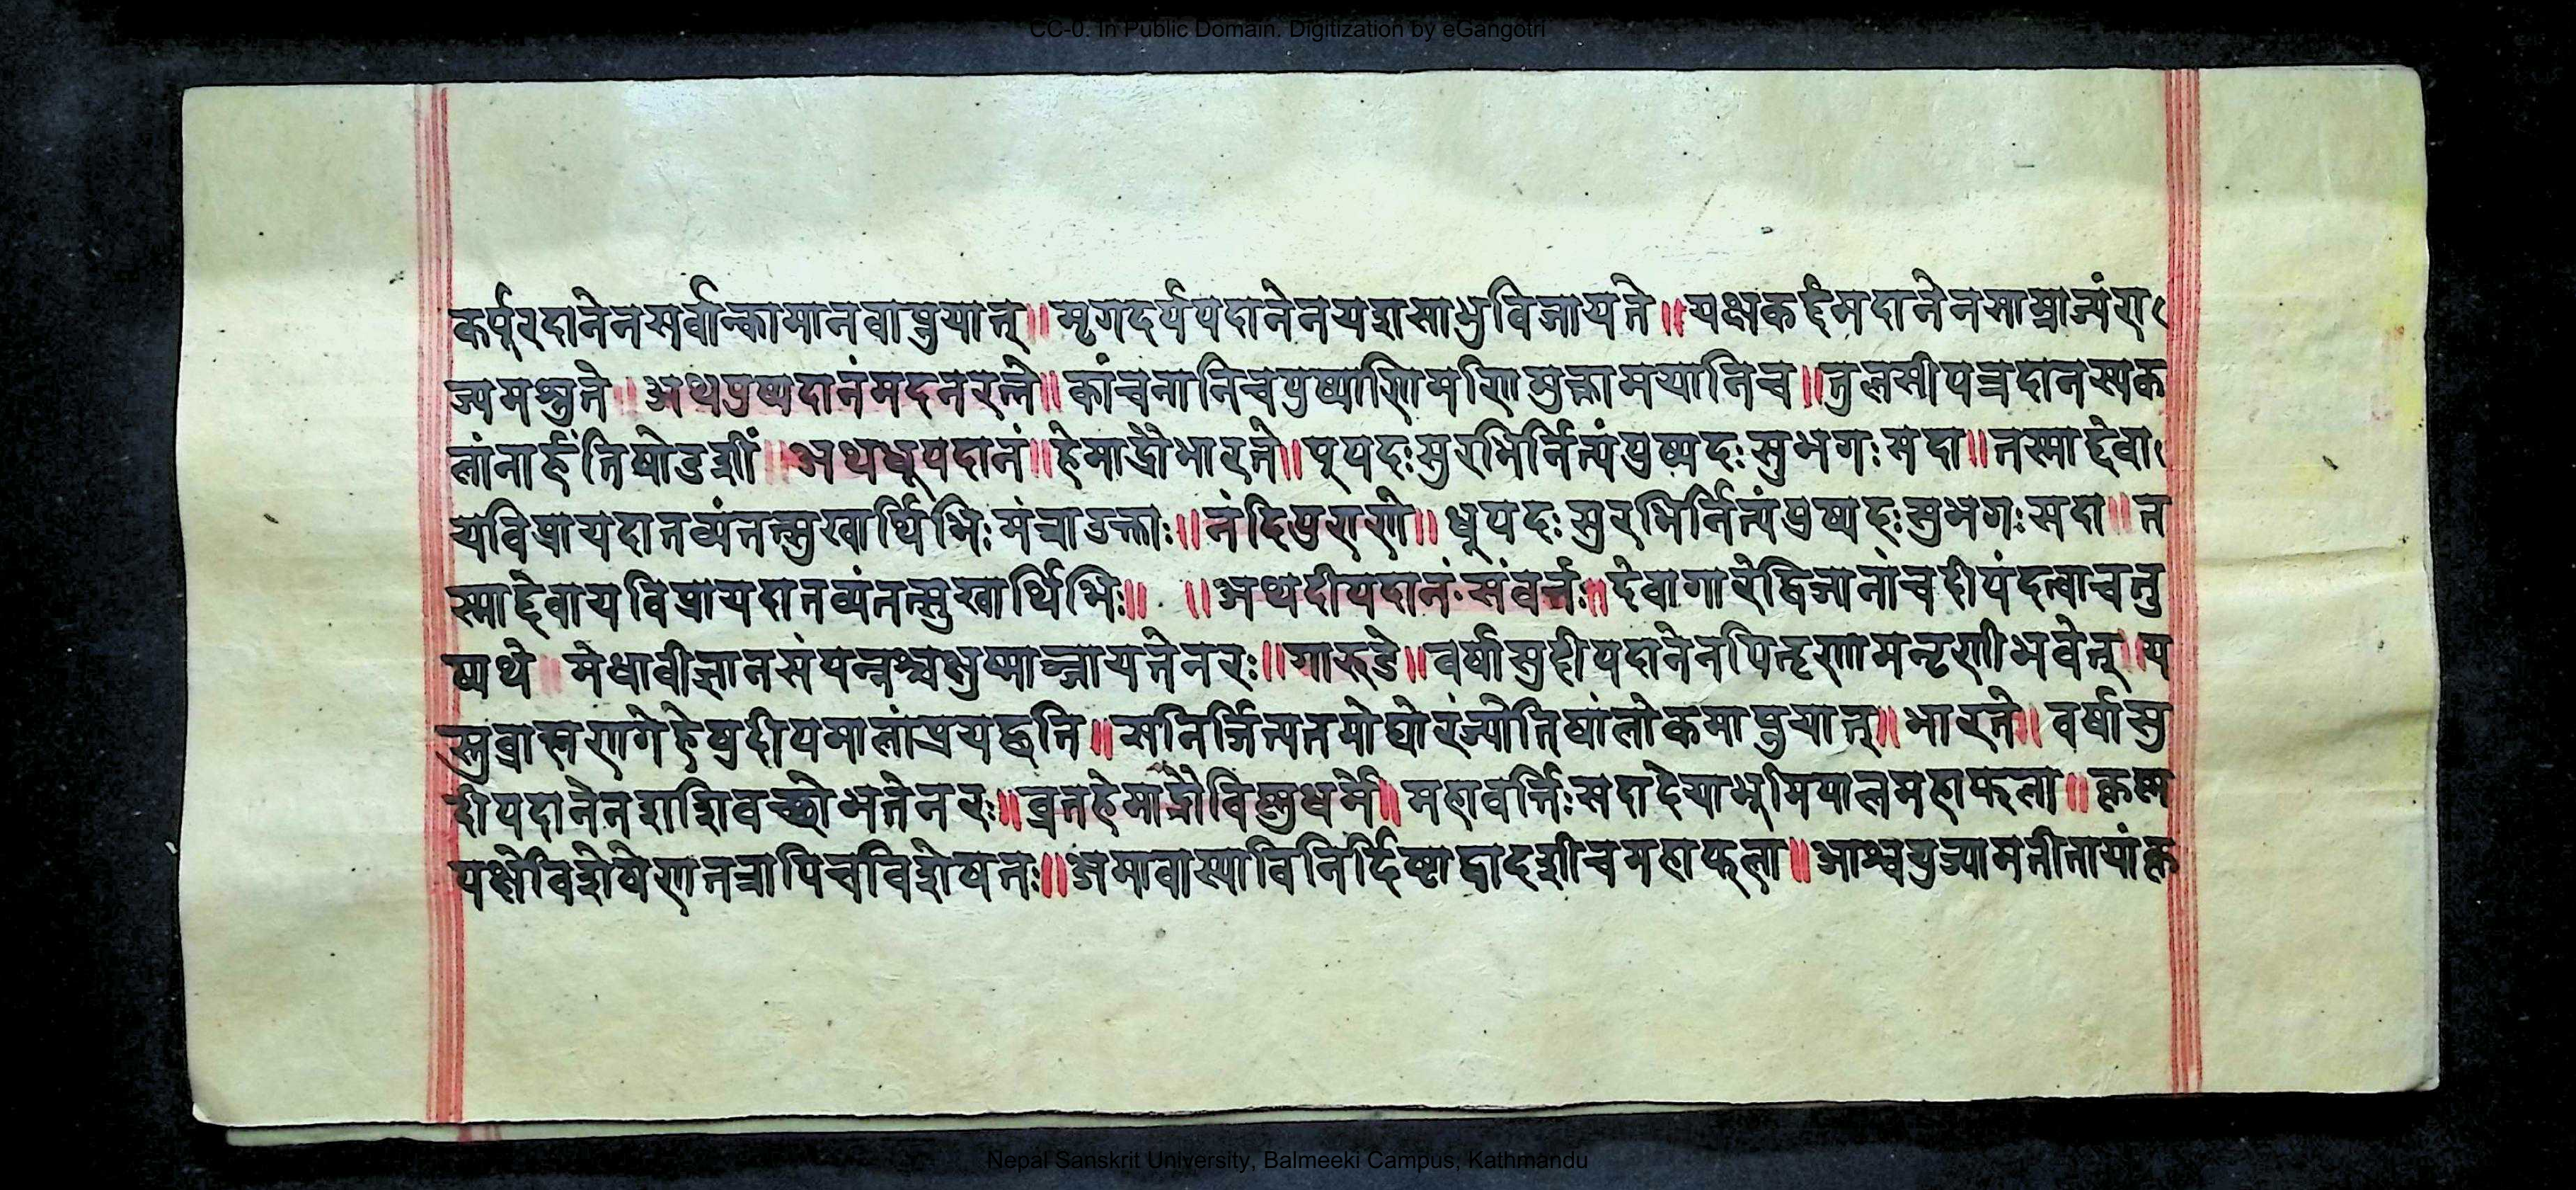 CC-0. In Public Domain. Digitization by eGangotri
कर्पूरदानेनसर्वान्कामानवाप्नुयात्॥मृगदर्पपदानेनयशसाभुविजायते॥यक्षकर्द्दमदानेनसाम्राज्यंरा
ज्यमश्नुते॥अथपुष्पदानंमदनरत्ने॥कांचनानिचपुष्पाणिमणिमुक्तामयानिच॥तुलसीपत्रदानस्यक
लांनार्हंतिषोडशीं॥अथधूपदानं॥हेमाद्रौभारते॥पूपदःसुरभिर्नित्यंपुष्पदःसुभगःसदा॥तस्माद्देवा
यविप्रायदातव्यंतत्सुखार्थिभिःमंत्राउक्ताः॥नंदिपुराणे॥धूपदःसुरभिर्नित्यंपुष्पदःसुभगःसदा॥त
स्माद्देवायविप्रायदातव्यंतत्सुखार्थिभिः॥ ॥अथदीपदानंसंवर्त्तः॥देवागारेद्विजानांचदीपंदत्वाचतु
ष्पथे॥मेधावीज्ञानसंपन्नश्चक्षुष्माञ्जायतेनरः॥गारुडे॥वर्षासुदीपदानेनपितॄणामनृणीभवेत्॥य
स्तुब्राह्मणगेहेषुदीपमालांप्रयछति॥सनिर्जित्यतमोघोरंज्योतिषांलोकमाप्नुयात्॥भारते॥वर्षासु
दीपदानेनशशिवच्छोभतेनरः॥व्रतहेमाद्रौविष्णुधर्मे॥महावर्त्तिःसदादेयाभूमिपालमहाफला॥कृष्ण
पक्षेविशेषेणतत्रापिचविशेषतः॥अमावास्याविनिर्दिष्टाद्वादशीचमहाफला॥आश्वयुज्यामतीतायांकृ
Nepal Sanskrit University, Balmeeki Campus, Kathmandu